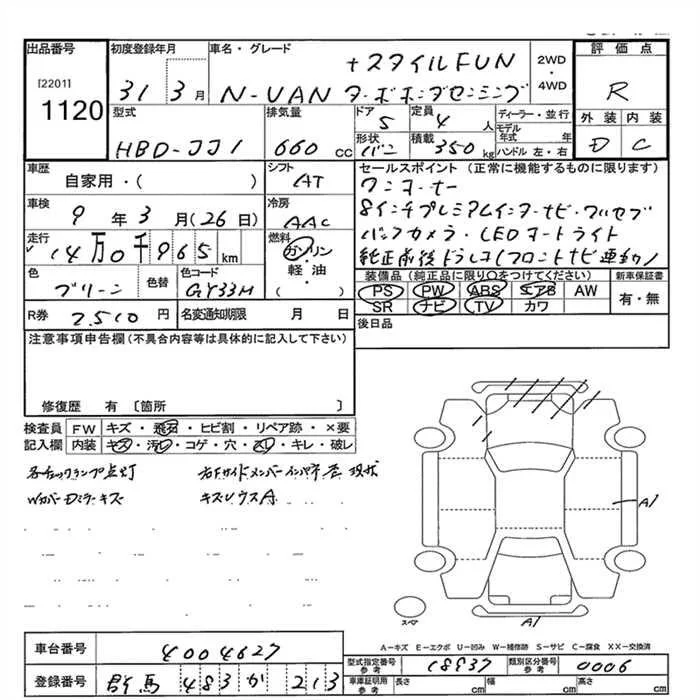 出品番号 初度登録年月 車名・グレード 評価点
[2201]
1120
31 3月
+スタイルFUN
N-VAN ターボホンダセンシング
2WD・4WD
R
型式 HBD-JJ1
排気量 660 cc
ドア 5 定員 4 人
形状 バン 積載 350 kg
ディーラー・並行
モデル年式 年
ハンドル 左・右
外装 内装
D C
車歴
自家用・( )
シフト AT
車検 9年3月(26日)
冷房 AAC
走行 14万0千965 km
燃料 ガソリン
軽・油・
( )
色 グリーン
色替
色コード GY33M
R券 2,510 円
名変通知期限 月 日
セールスポイント(正常に機能するものに限ります)
ワンオーナー
8インチプレミアムインターナビ・フルセグ
バックカメラ・LEDオートライト
純正前後ドラレコ(フロントナビ連動)
装備品(純正品に限り○をつけてください) 新車保証書
PS PW ABS エアB AW
SR ナビ TV カワ
有・無
後日品
注意事項申告欄(不具合内容等は具体的に記入して下さい)
修復歴 有 〔箇所 〕
検査員記入欄
FW キズ・飛石・ヒビ割・リペア跡・×要
内装 キズ・汚レ・コゲ・穴・スレ・キレ・破レ
各チェックランプ点灯
Wカバー Dミラーキズ
右Fサイドメンバーインパネ
現状
A1
A1
スペア
A－キズ E－エクボ U－凹み W－補修跡 S－サビ C－腐食 XX－交換済
車台番号 4004627
登録番号 群馬 483 か 213
型式指定番号 参考 18937
類別区分番号 参考 0006
車庫証明用 参考 長さ cm 幅 cm 高さ cm